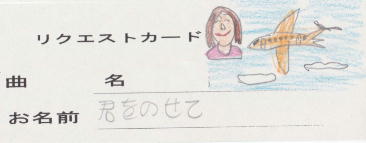 リクエストカード
曲　　名
お名前 君をのせて